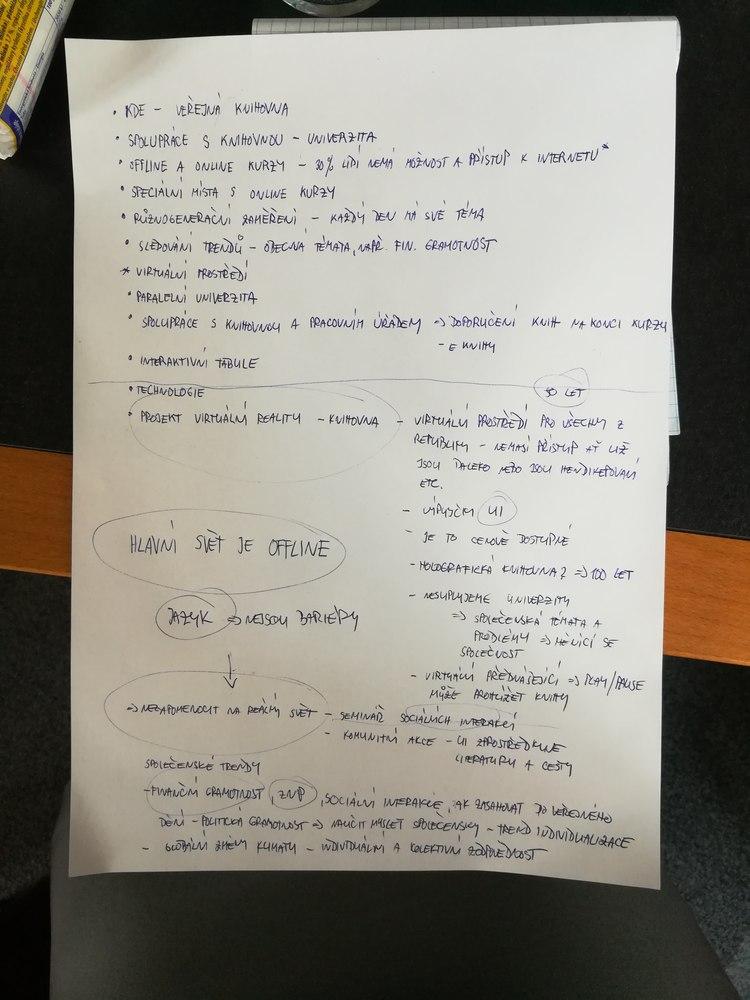 • KDE – VEŘEJNÁ KNIHOVNA
• SPOLUPRÁCE S KNIHOVNOU – UNIVERZITA
• OFFLINE A ONLINE KURZY – 30% LIDÍ NEMÁ MOŽNOST A PŘÍSTUP K INTERNETU*
• SPECIÁLNÍ MÍSTA S ONLINE KURZY
• RŮZNOGENERAČNÍ ZAMĚŘENÍ – KAŽDÝ DEN MÁ SVÉ TÉMA
• SLEDOVÁNÍ TRENDŮ – OBECNÁ TÉMATA, NAPŘ. FIN. GRAMOTNOST
* VIRTUÁLNÍ PROSTŘEDÍ
• PARALELNÍ UNIVERZITA
• SPOLUPRÁCE S KNIHOVNOU A PRACOVNÍM ÚŘADEM => DOPORUČENÍ KNIH NA KONCI KURZU
– E KNIHY
• INTERAKTIVNÍ TABULE
• TECHNOLOGIE
50 LET
• PROJEKT VIRTUÁLNÍ REALITY – KNIHOVNA – VIRTUÁLNÍ PROSTŘEDÍ PRO VŠECHNY Z
REPUBLIKY – NEMAJÍ PŘÍSTUP AŤ UŽ
JSOU DALEKO NEBO JSOU HENDIKEPOVANÍ
ETC.
– UI
– JE TO CENOVĚ DOSTUPNÉ
– HOLOGRAFICKÁ KNIHOVNA? => 100 LET
– NESUPLUJEME UNIVERZITY
=> SPOLEČENSKÁ TÉMATA A
PROBLÉMY => MĚNÍCÍ SE
SPOLEČNOST
– VIRTUÁLNÍ PŘEDNÁŠEJÍCÍ => PLAY/PAUSE
MŮŽE PROHLÍŽET KNIHY
HLAVNÍ SVĚT JE OFFLINE
JAZYK => NEJSOU BARIÉRY
=> NEZAPOMENOUT NA REÁLNÝ SVĚT – SEMINÁŘ SOCIÁLNÍCH INTERAKCÍ
– KOMUNITNÍ AKCE – UI ZPROSTŘEDKUJE
LITERATURU A CESTY
SPOLEČENSKÉ TRENDY
– FINANČNÍ GRAMOTNOST, ŽNP, SOCIÁLNÍ INTERAKCE, JAK ZASAHOVAT DO VEŘEJNÉHO
DĚNÍ – POLITICKÁ GRAMOTNOST => NAUČIT MYSLET SPOLEČENSKY – TREND INDIVIDUALIZACE
– GLOBÁLNÍ ZMĚNY KLIMATU – INDIVIDUÁLNÍ A KOLEKTIVNÍ ZODPOVĚDNOST